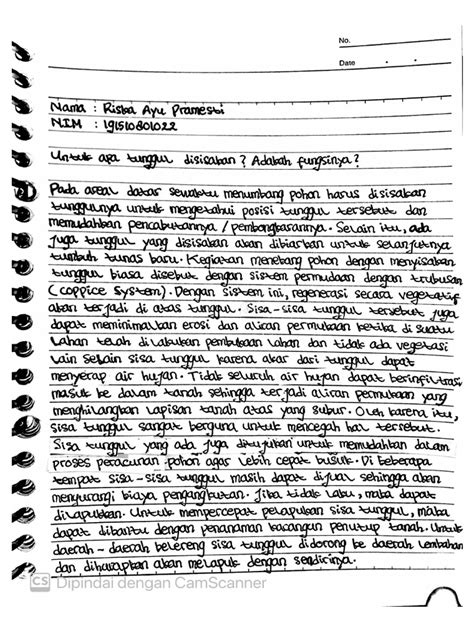 No.
Date
Nama : Riska Ayu Pramesti
NIM : 191510801022
Untuk apa tunggul disisakan? Adakah fungsinya?
Pada areal datar sewaktu menumbang pohon harus disisakan
tunggulnya untuk mengetahui posisi tunggul tersebut dan
memudahkan pencabutannya / pembongkarannya. Selain itu, ada
juga tunggul yang disisakan akan dibiarkan untuk selanjutnya
tumbuh tunas baru. Kegiatan menebang pohon dengan menyisakan
tunggul biasa disebut dengan sistem permudaan dengan trubusan
(coppice system). Dengan sistem ini, regenerasi secara vegetatif
akan terjadi di atas tunggul. Sisa-sisa tunggul tersebut juga
dapat meminimalkan erosi dan aliran permukaan ketika di suatu
lahan telah di lakukan pembukaan lahan dan tidak ada vegetasi
lain selain sisa tunggul karena akar dari tunggul dapat
menyerap air hujan. Tidak seluruh air hujan dapat berinfiltrasi
masuk ke dalam tanah sehingga terjadi aliran permukaan yang
menghilangkan lapisan tanah atas yang subur. Oleh karena itu,
sisa tunggul sangat berguna untuk mencegah hal tersebut.
Sisa tunggul yang ada juga ditujukan untuk memudahkan dalam
proses peracunan pohon agar lebih cepat busuk. Di beberapa
tempat sisa-sisa tunggul masih dapat dijual sehingga akan
mengurangi biaya pengangkutan. Jika tidak laku, maka dapat
dilapukkan. Untuk mempercepat pelapukan sisa tunggul, maka
dapat dibantu dengan penanaman kacangan penutup tanah. Untuk
daerah-daerah berlereng sisa tunggul didorong ke daerah lembahan
dan diharapkan akan melapuk dengan sendirinya.
CS Dipindai dengan CamScanner